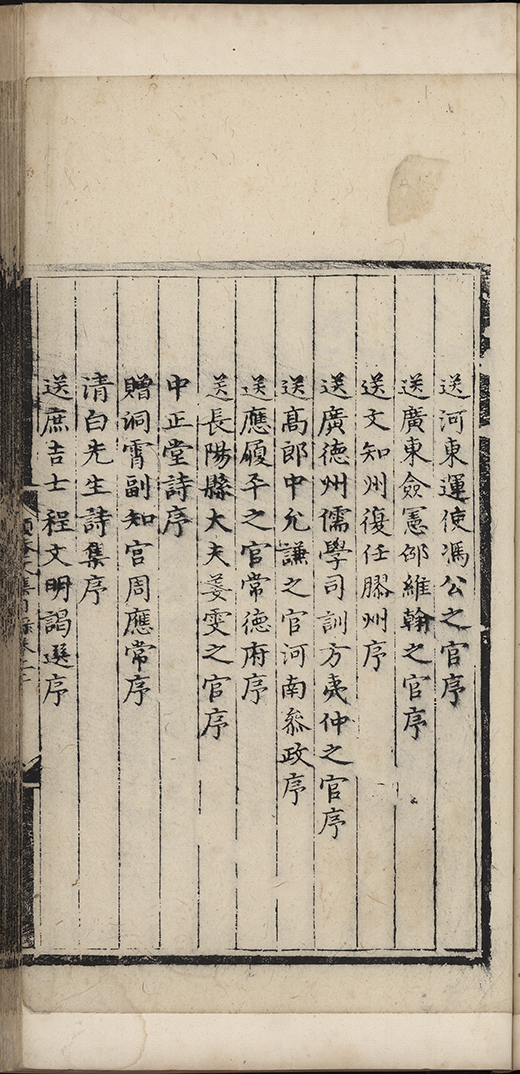 送河東運使馮公之官序
送廣東僉憲邵維翰之官序
送文知州復任膠州序
送廣德州儒學司訓方夷仲之官序
送高郎中允謙之官河南叅政序
送應履平之官常德府序
送長陽縣大夫姜雯之官序
中正堂詩序
贈洞霄副知宮周應常序
清白先生詩集序
送庶吉士程文明謁選序